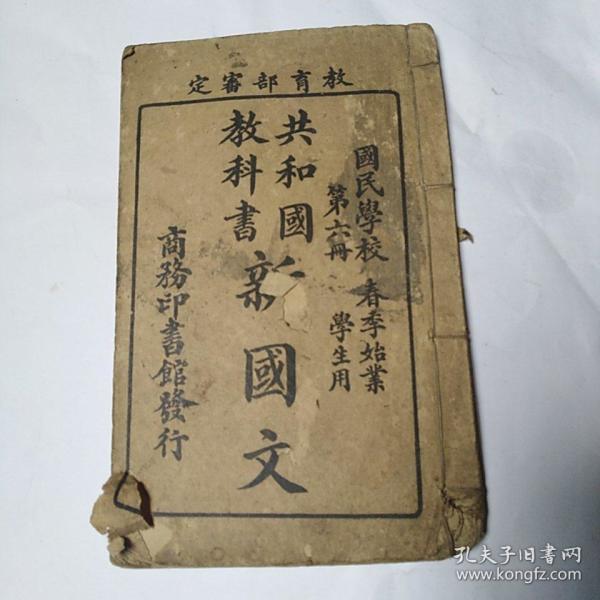 教育部審定
國民學校 春季始業
第六冊 學生用
共和國
教科書
新國文
商務印書館發行
孔夫子旧书网
www.kongfz.com